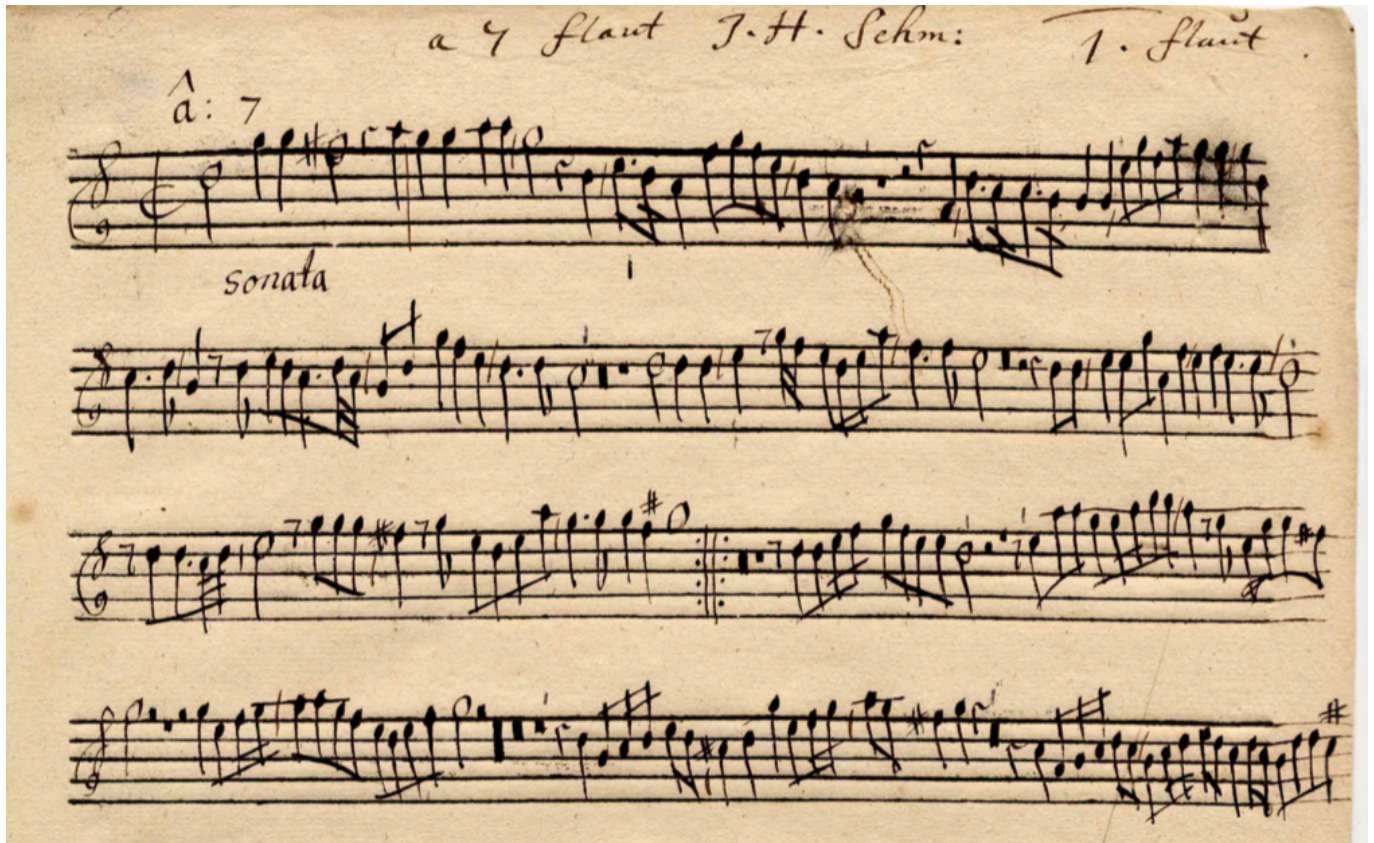 a 7 flaut J. H. Schm: 1. flaut
â: 7
sonata